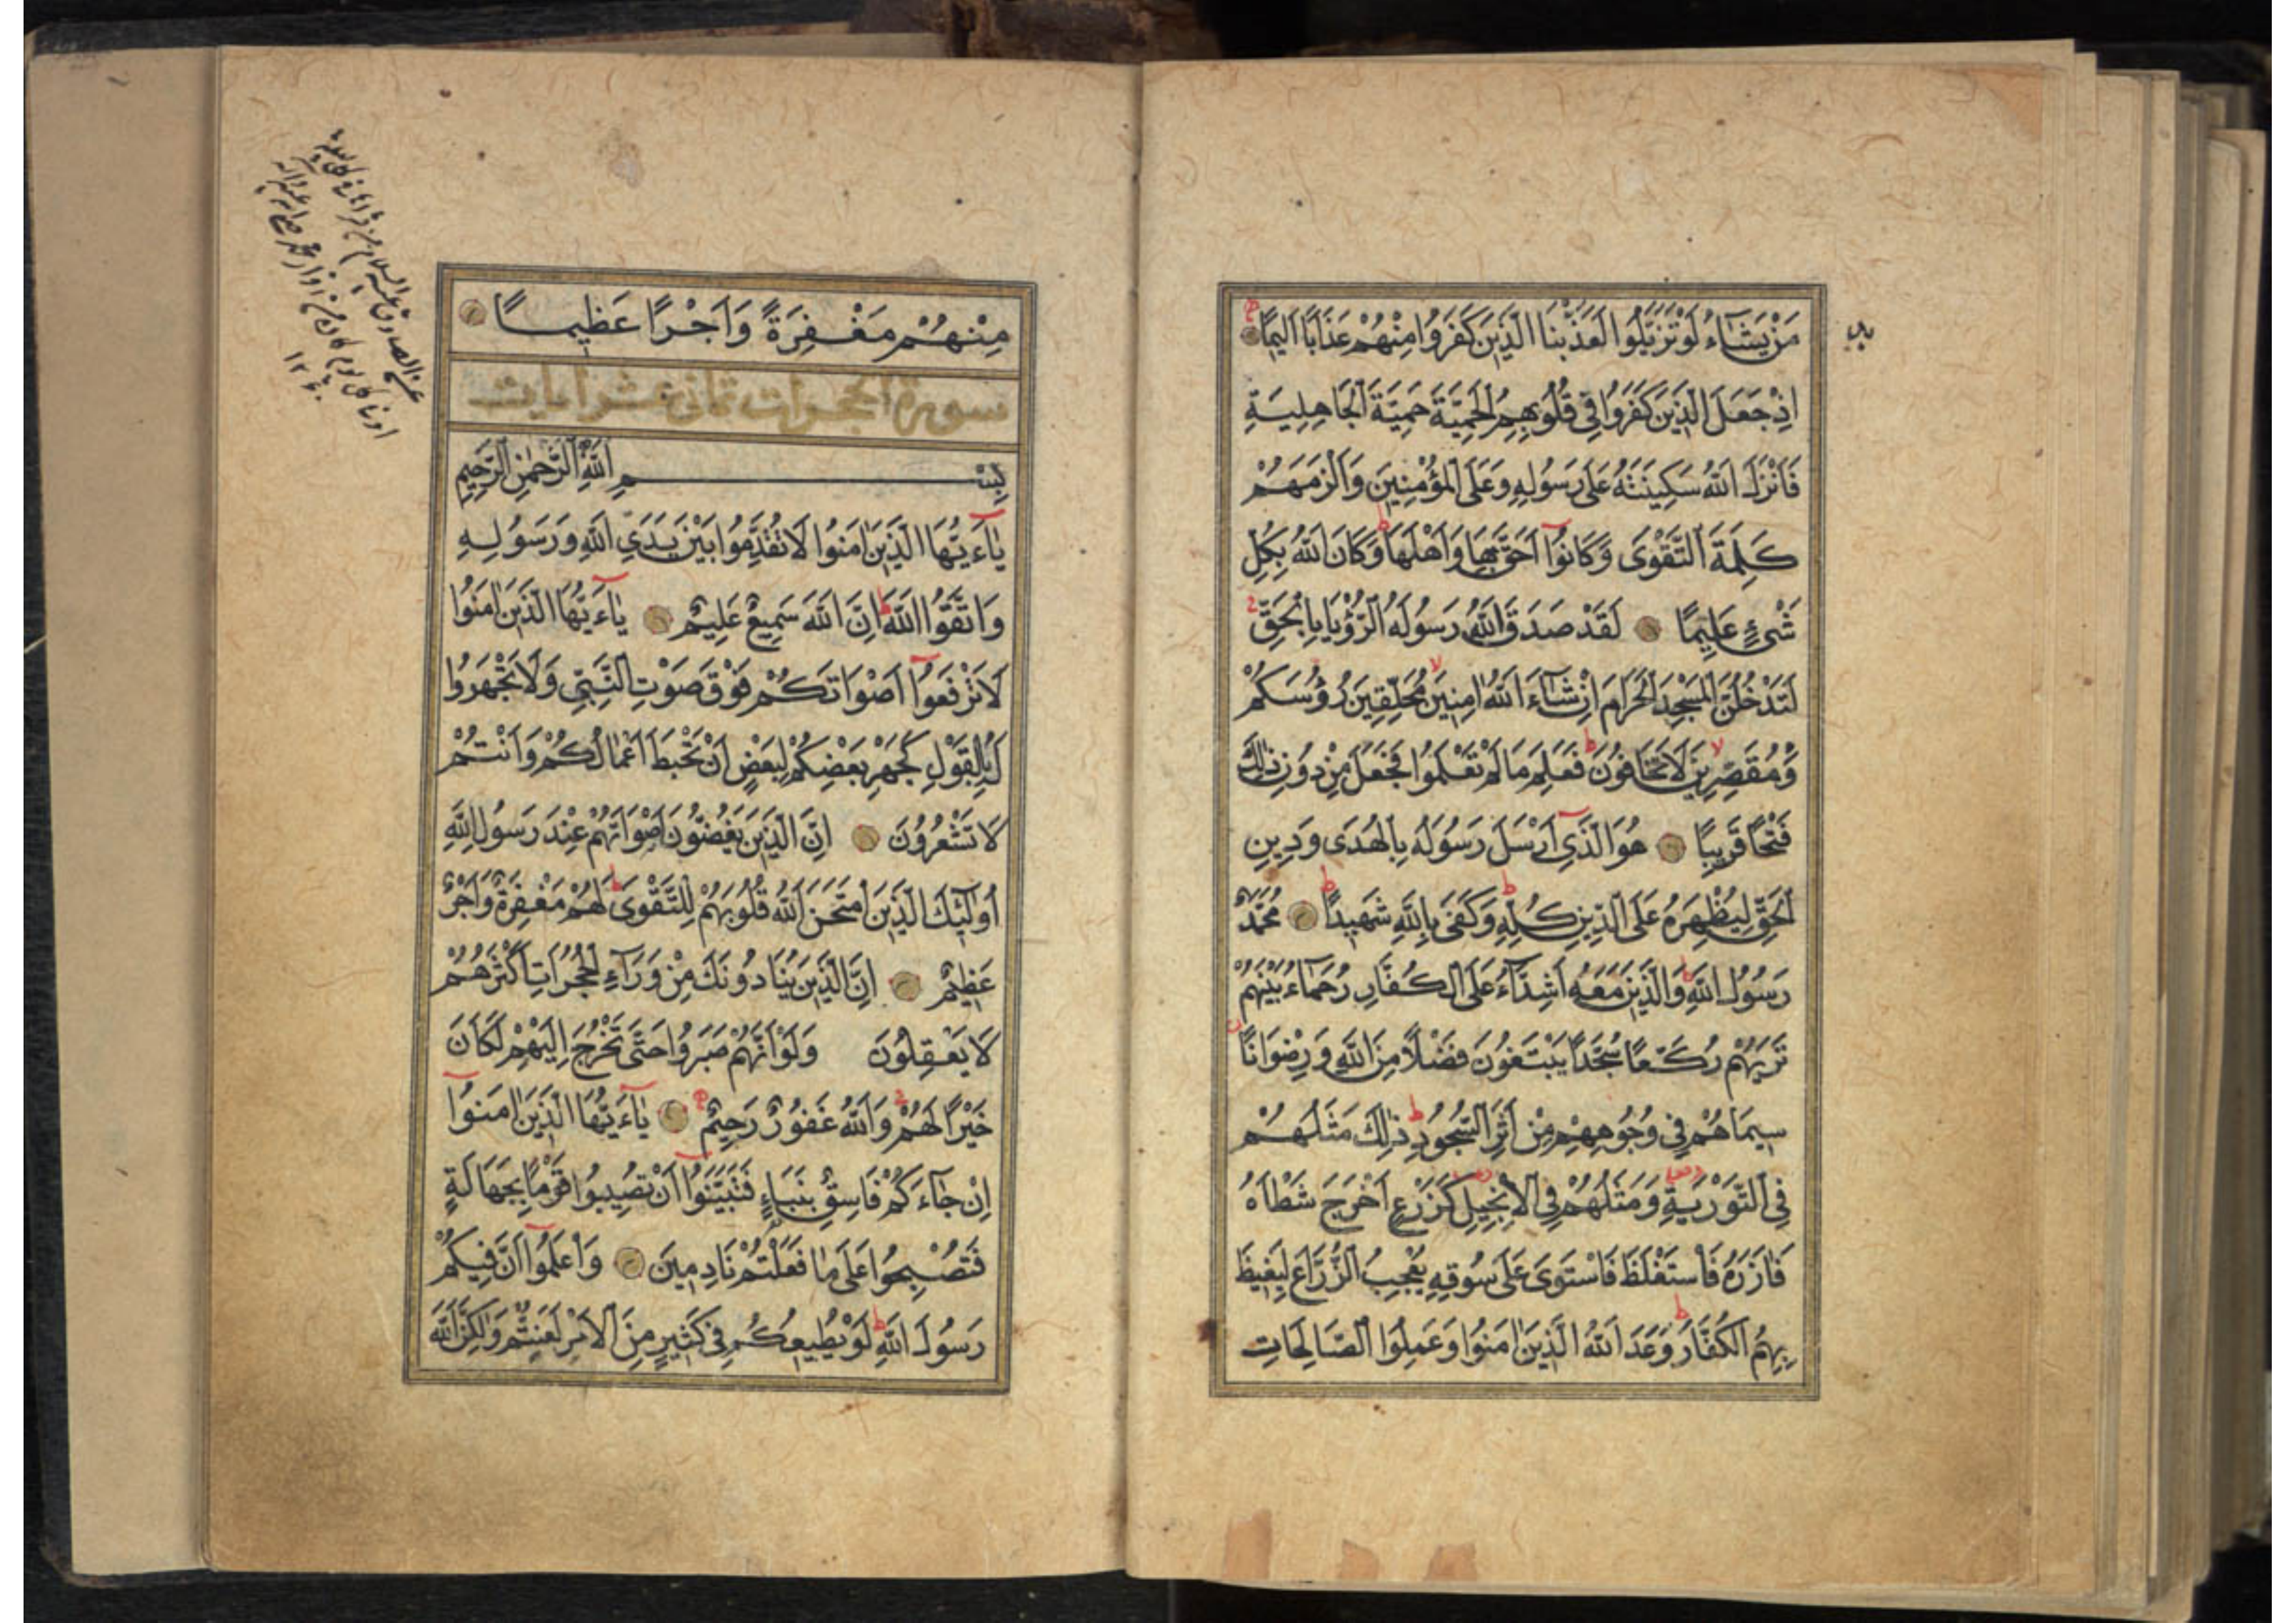 مَنْ يَشَاءُ لَوْ تَزَيَّلُوا لَعَذَّبْنَا الَّذِينَ كَفَرُوا مِنْهُمْ عَذَابًا اَلِيمًا
اِذْ جَعَلَ الَّذِينَ كَفَرُوا فِي قُلُوبِهِمُ الْحَمِيَّةَ حَمِيَّةَ الْجَاهِلِيَّةِ
فَاَنْزَلَ اللهُ سَكِينَتَهُ عَلَى رَسُولِهِ وَعَلَى الْمُؤْمِنِينَ وَاَلْزَمَهُمْ
كَلِمَةَ التَّقْوَى وَكَانُوا اَحَقَّ بِهَا وَاَهْلَهَا وَكَانَ اللهُ بِكُلِّ
شَيْءٍ عَلِيمًا لَقَدْ صَدَقَ اللهُ رَسُولَهُ الرُّؤْيَا بِالْحَقِّ
لَتَدْخُلُنَّ الْمَسْجِدَ الْحَرَامَ اِنْ شَاءَ اللهُ اٰمِنِينَ مُحَلِّقِينَ رُؤُسَكُمْ
وَمُقَصِّرِينَ لَا تَخَافُونَ فَعَلِمَ مَا لَمْ تَعْلَمُوا فَجَعَلَ مِنْ دُونِ ذٰلِكَ
فَتْحًا قَرِيبًا هُوَ الَّذِي اَرْسَلَ رَسُولَهُ بِالْهُدَى وَدِينِ
الْحَقِّ لِيُظْهِرَهُ عَلَى الدِّينِ كُلِّهِ وَكَفَى بِاللهِ شَهِيدًا مُحَمَّدٌ
رَسُولُ اللهِ وَالَّذِينَ مَعَهُ اَشِدَّاءُ عَلَى الْكُفَّارِ رُحَمَاءُ بَيْنَهُمْ
تَرٰيهُمْ رُكَّعًا سُجَّدًا يَبْتَغُونَ فَضْلًا مِنَ اللهِ وَرِضْوَانًا
سِيمَاهُمْ فِي وُجُوهِهِمْ مِنْ اَثَرِ السُّجُودِ ذٰلِكَ مَثَلُهُمْ
فِي التَّوْرٰيةِ وَمَثَلُهُمْ فِي الْاِنْجِيلِ كَزَرْعٍ اَخْرَجَ شَطْاَهُ
فَاٰزَرَهُ فَاسْتَغْلَظَ فَاسْتَوَى عَلَى سُوقِهِ يُعْجِبُ الزُّرَّاعَ لِيَغِيظَ
بِهِمُ الْكُفَّارَ وَعَدَ اللهُ الَّذِينَ اٰمَنُوا وَعَمِلُوا الصَّالِحَاتِ
مِنْهُمْ مَغْفِرَةً وَاَجْرًا عَظِيمًا
سورة الحجرات ثماني عشر ايات
بِسْمِ اللهِ الرَّحْمٰنِ الرَّحِيمِ
يَا اَيُّهَا الَّذِينَ اٰمَنُوا لَا تُقَدِّمُوا بَيْنَ يَدَيِ اللهِ وَرَسُولِهِ
وَاتَّقُوا اللهَ اِنَّ اللهَ سَمِيعٌ عَلِيمٌ يَا اَيُّهَا الَّذِينَ اٰمَنُوا
لَا تَرْفَعُوا اَصْوَاتَكُمْ فَوْقَ صَوْتِ النَّبِيِّ وَلَا تَجْهَرُوا
لَهُ بِالْقَوْلِ كَجَهْرِ بَعْضِكُمْ لِبَعْضٍ اَنْ تَحْبَطَ اَعْمَالُكُمْ وَاَنْتُمْ
لَا تَشْعُرُونَ اِنَّ الَّذِينَ يَغُضُّونَ اَصْوَاتَهُمْ عِنْدَ رَسُولِ اللهِ
اُولٰئِكَ الَّذِينَ امْتَحَنَ اللهُ قُلُوبَهُمْ لِلتَّقْوَى لَهُمْ مَغْفِرَةٌ وَاَجْرٌ
عَظِيمٌ اِنَّ الَّذِينَ يُنَادُونَكَ مِنْ وَرَاءِ الْحُجُرَاتِ اَكْثَرُهُمْ
لَا يَعْقِلُونَ وَلَوْ اَنَّهُمْ صَبَرُوا حَتَّى تَخْرُجَ اِلَيْهِمْ لَكَانَ
خَيْرًا لَهُمْ وَاللهُ غَفُورٌ رَحِيمٌ يَا اَيُّهَا الَّذِينَ اٰمَنُوا
اِنْ جَاءَكُمْ فَاسِقٌ بِنَبَاءٍ فَتَبَيَّنُوا اَنْ تُصِيبُوا قَوْمًا بِجَهَالَةٍ
فَتُصْبِحُوا عَلَى مَا فَعَلْتُمْ نَادِمِينَ وَاعْلَمُوا اَنَّ فِيكُمْ
رَسُولَ اللهِ لَوْ يُطِيعُكُمْ فِي كَثِيرٍ مِنَ الْاَمْرِ لَعَنِتُّمْ وَلٰكِنَّ اللهَ
عن الصادق عليه السلام من